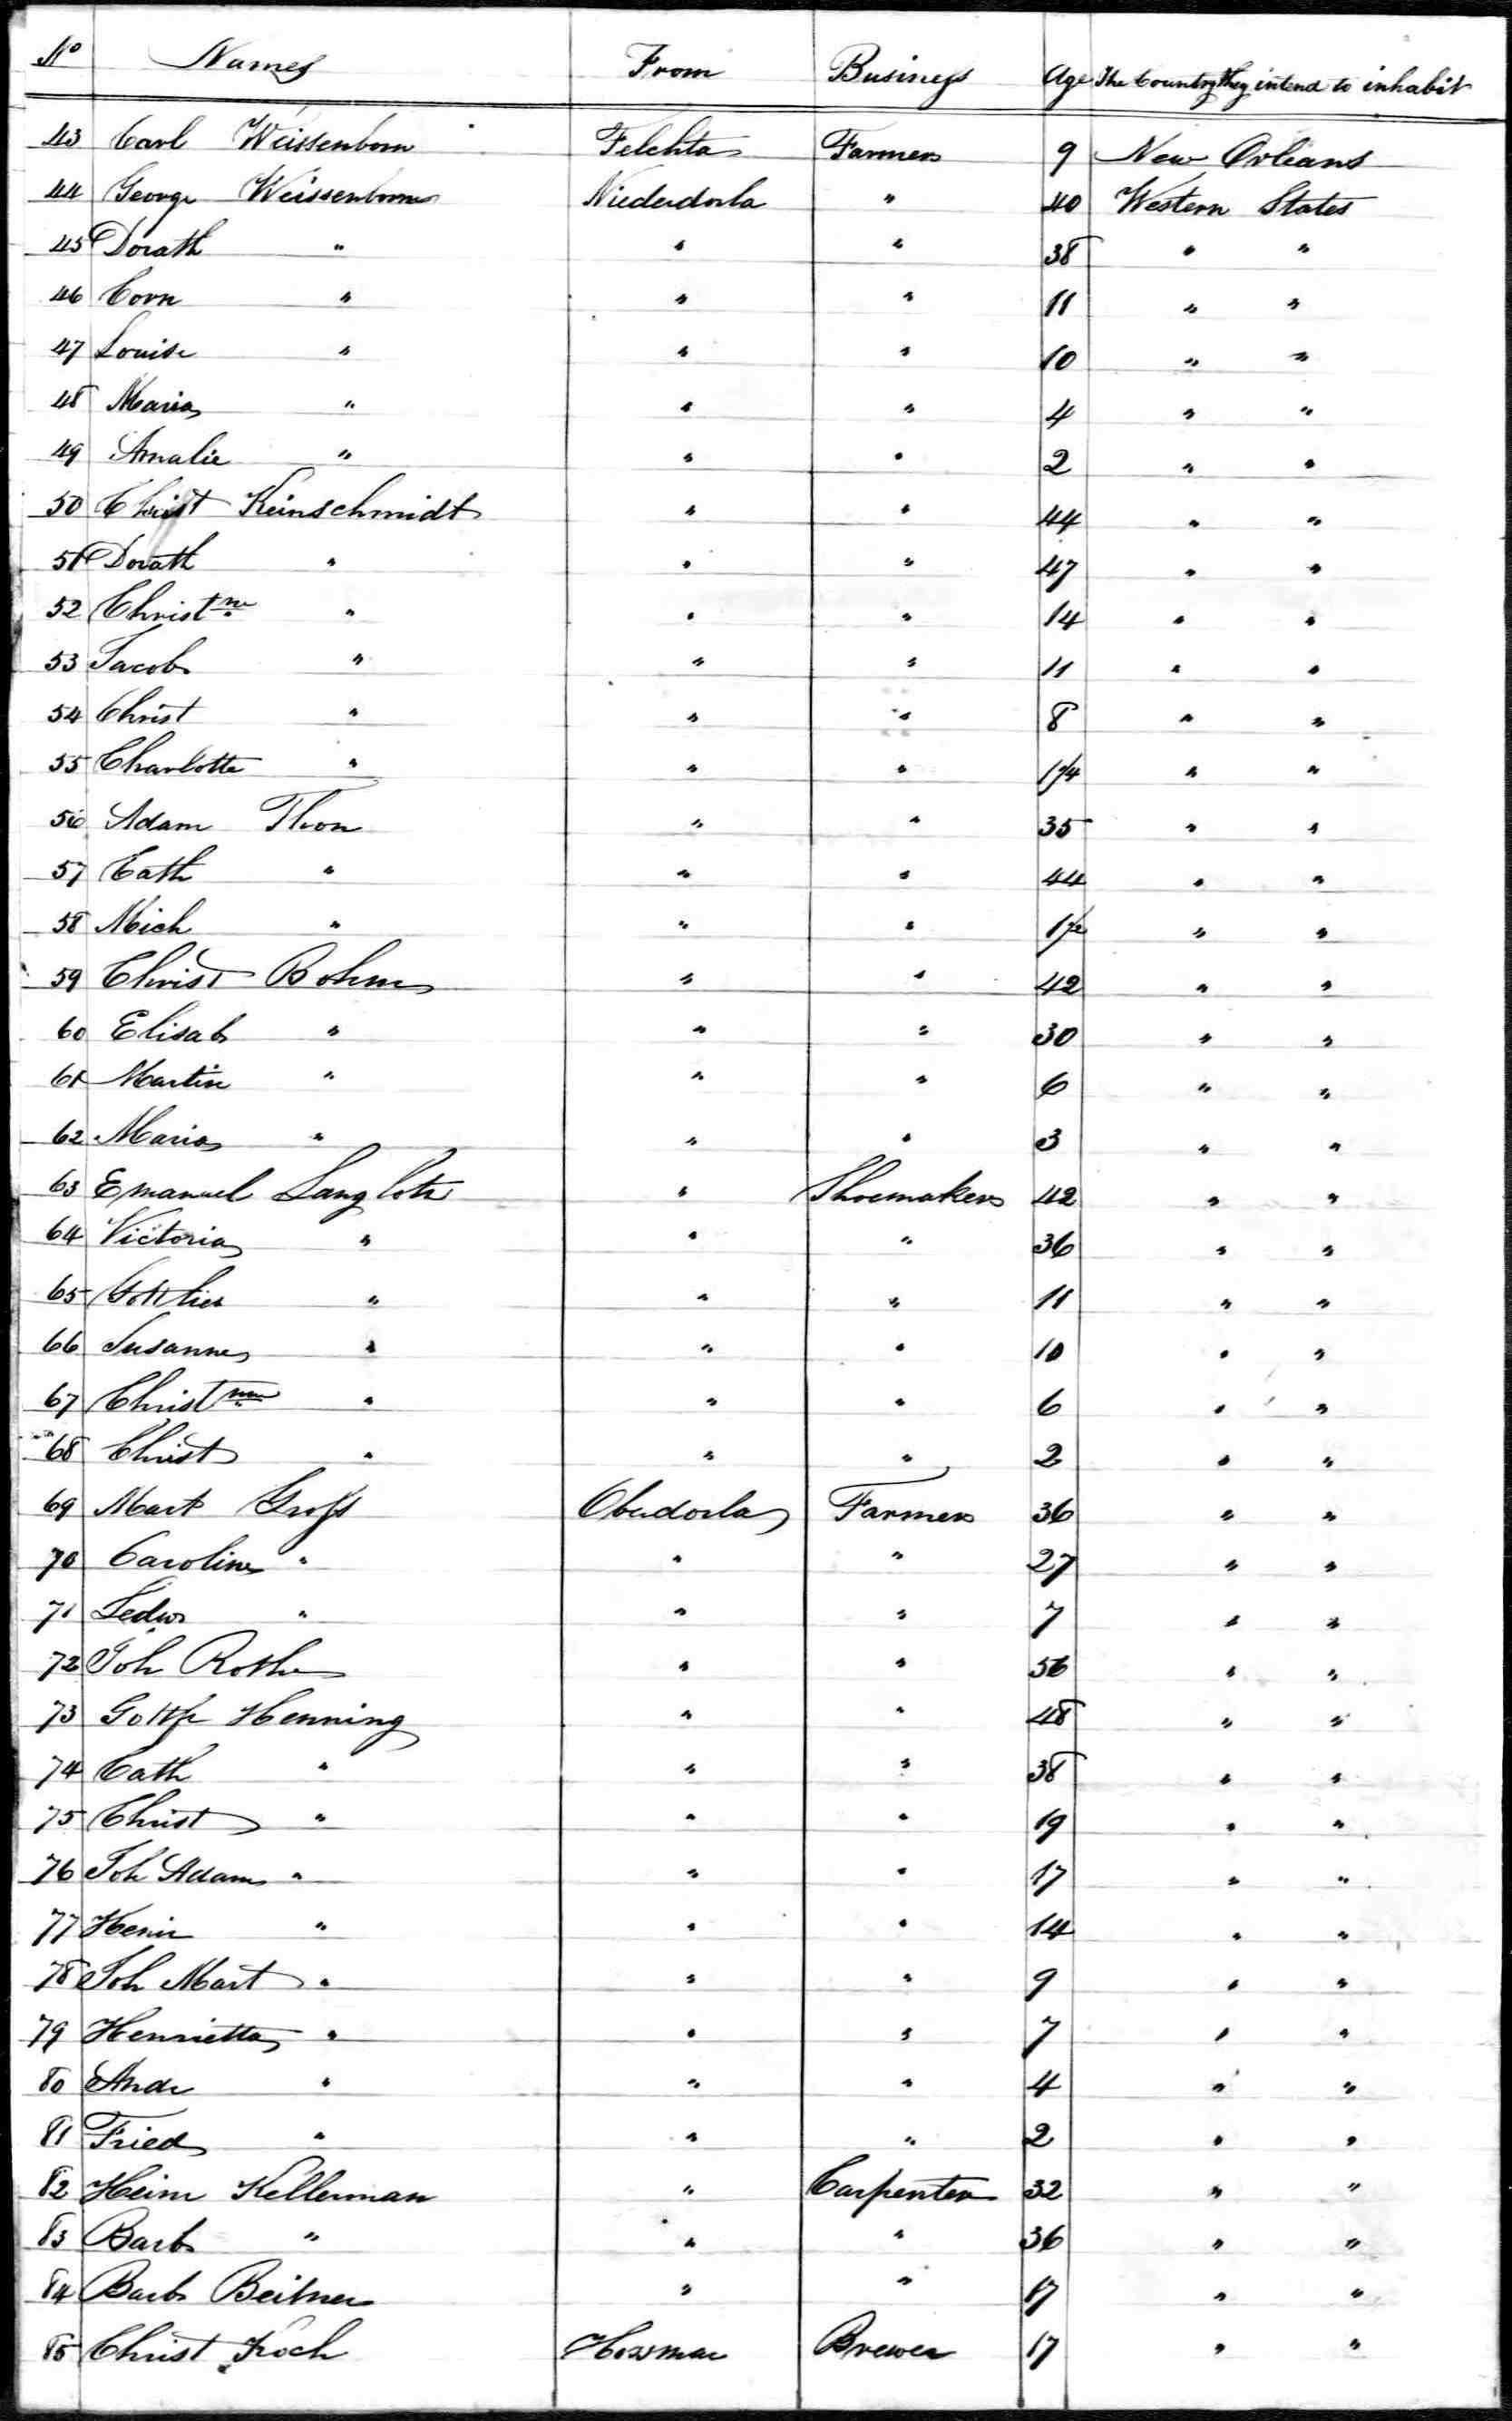 No Names From Business Age The Country they intend to inhabit
43 Carl Weissenborn Felchta Farmer 9 New Orleans
44 George Weissenborn Niederdorla " 40 Western States
45 Dorath " " " 38 " "
46 Corn " " " 11 " "
47 Louise " " " 10 " "
48 Maria " " " 4 " "
49 Amalie " " " 2 " "
50 Christ Keinschmidt " " 44 " "
51 Dorath " " " 47 " "
52 Christne " " " 14 " "
53 Jacob " " " 11 " "
54 Christ " " " 8 " "
55 Charlotte " " " 1/4 " "
56 Adam Thon " " 35 " "
57 Cath " " " 44 " "
58 Mich " " " 1/2 " "
59 Christ Bohm " " 42 " "
60 Elisab " " " 30 " "
61 Martin " " " 6 " "
62 Maria " " " 3 " "
63 Emanuel Langlotz " Shoemaker 42 " "
64 Victoria " " " 36 " "
65 Gottlieb " " " 11 " "
66 Susanne " " " 10 " "
67 Christne " " " 6 " "
68 Christ " " " 2 " "
69 Mart Gross Oberdorla Farmer 36 " "
70 Caroline " " " 27 " "
71 " " " 7 " "
72 Joh Rothe " " 56 " "
73 Gottfr Henning " " 48 " "
74 Cath " " " 38 " "
75 Christ " " " 19 " "
76 Joh Adam " " " 17 " "
77 Heinr " " " 14 " "
78 Joh Mart " " " 9 " "
79 Henrietta " " " 7 " "
80 Andr " " " 4 " "
81 Fried " " " 2 " "
82 Heinr Kellerman " Carpenter 32 " "
83 Barb " " " 36 " "
84 Barb Beitner " " 17 " "
85 Christ Koch Brewer 17 " "